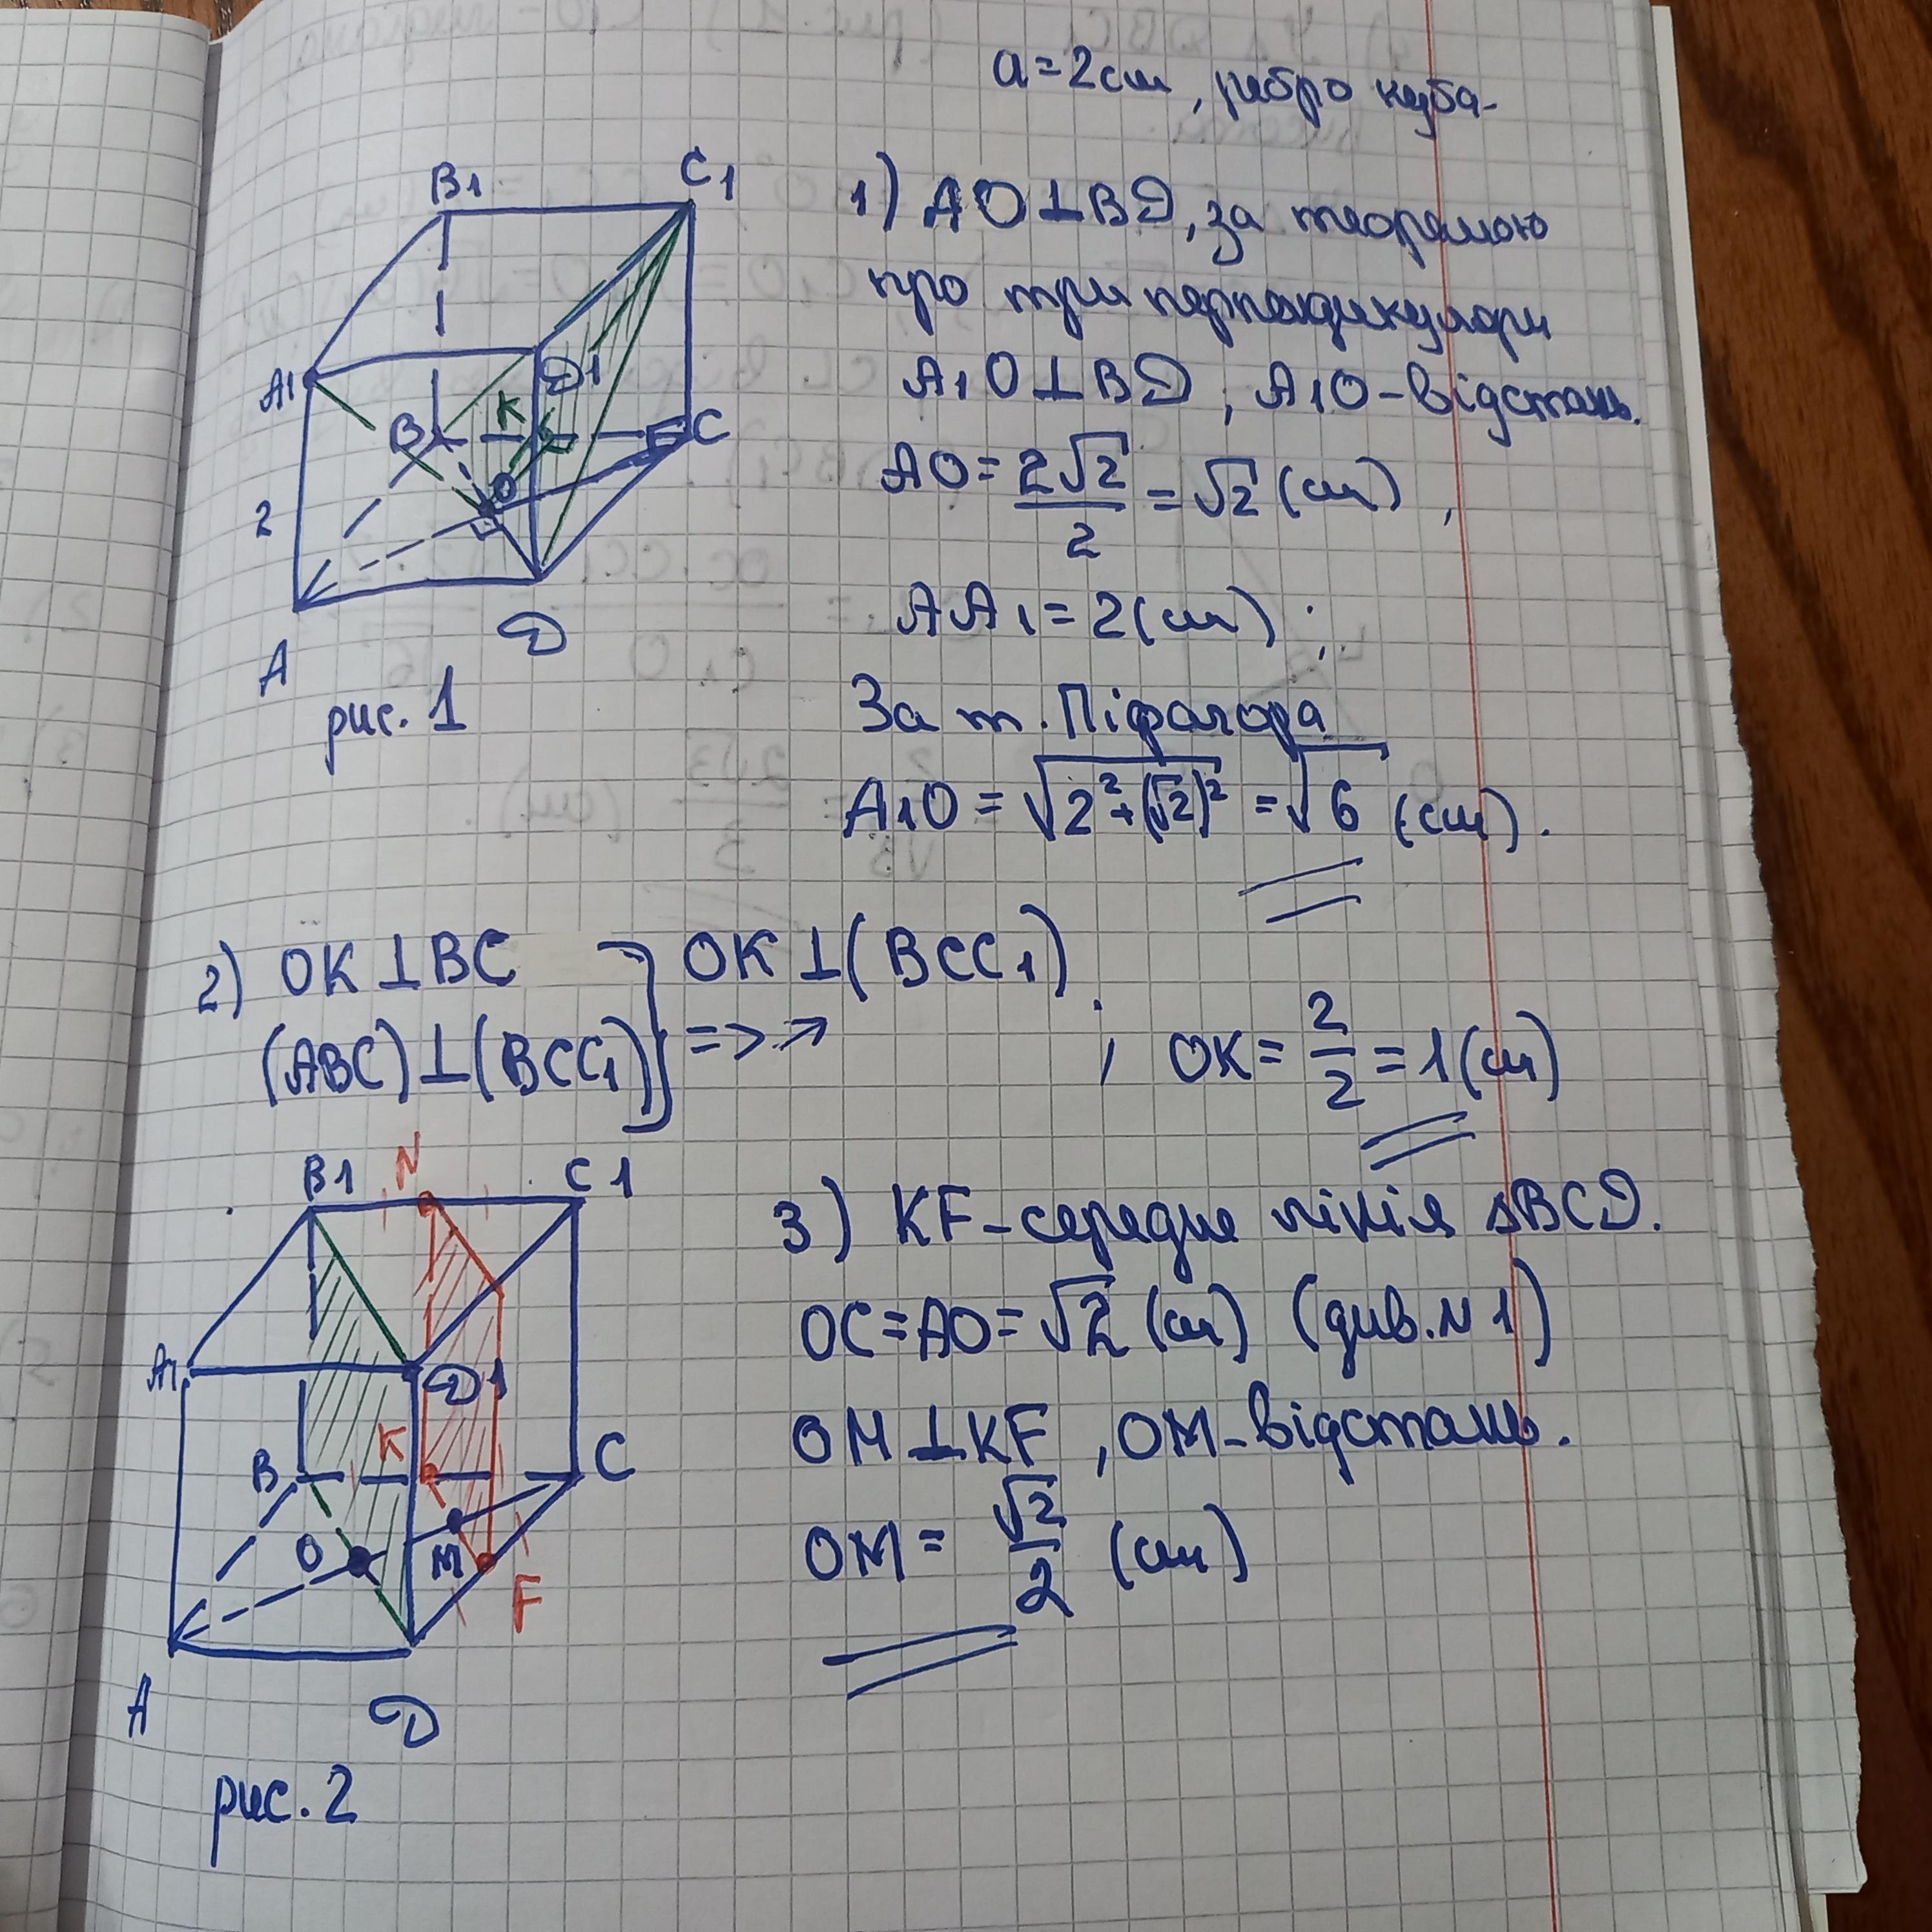 a=2см, ребро куба-
B1
C1
A1
D1
K
B
C
O
2
A
D
рис. 1
1) AO⊥BD, за теоремою
про три перпендикуляри
A1O⊥BD, A1O-відстань.
AO=2√2/2=√2(см),
AA1=2(см);
За т. Піфагора
A1O=√(2²+(√2)²)=√6(см).
2) OK⊥BC
(ABC)⊥(BCC1) } => OK⊥(BCC1).
, OK=2/2=1(см)
B1
N
C1
A1
D1
K
B
C
O
M
F
A
D
рис. 2
3) KF-середнє лінія ΔBCD.
OC=AO=√2(см) (див. N1)
OM⊥KF, OM-відстань.
OM=√2/2(см)